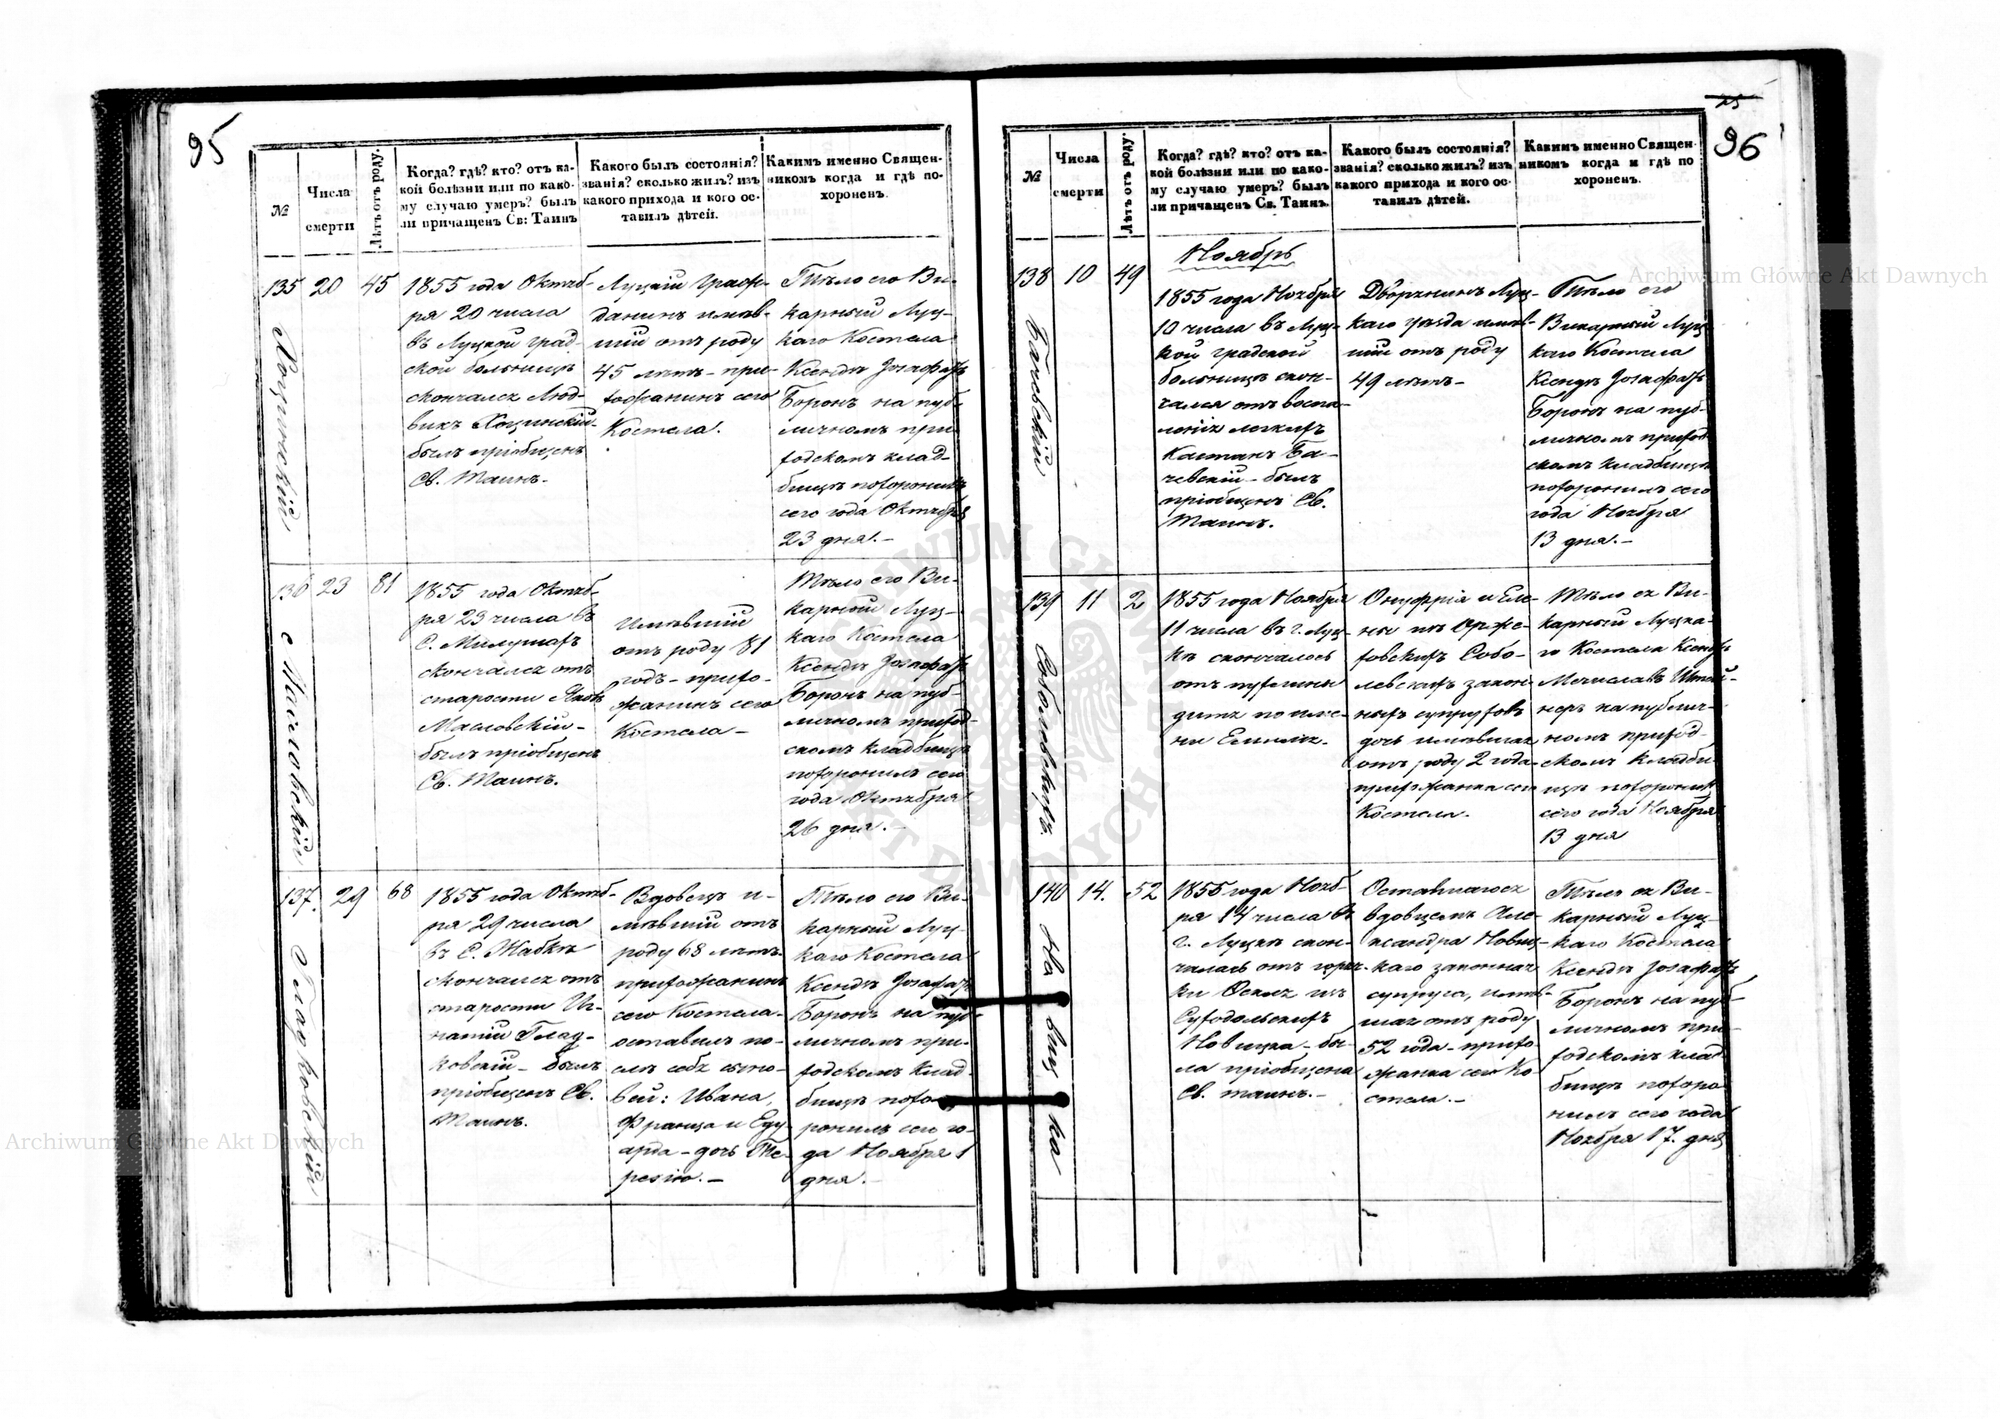 95
№
Числа
смерти
Лѣтъ отъ роду.
Когда? гдѣ? кто? отъ ка-
кой болѣзни или по како-
му случаю умеръ? былъ
ли причащенъ Св: Таинъ
Какого былъ состоянія?
званія? сколько жилъ? изъ
какого прихода и кого ос-
тавилъ дѣтей.
Какимъ именно Священ-
никомъ когда и гдѣ по-
хороненъ.
135
20
45
1855 года Октяб-
ря 20 числа
въ Луцкой град-
ской больницѣ
скончался Люд-
викъ
былъ пріобщенъ
Св. Таинъ.
Луцкій Граж-
данинъ имѣв-
шій отъ роду
45 лѣтъ - при-
хожанинъ сего
Костела.
Тѣло его Ви-
карный Луц-
каго Костела
Ксендзъ Іозафатъ
Боронъ на пуб-
личномъ при-
ходскомъ клад-
бищѣ похоронилъ
сего года Октября
23 дня.-
136
23
81
Масловскій
1855 года Октяб-
ря 23 числа въ
С. Милушахъ
скончался отъ
старости Яковъ
Масловскій -
былъ пріобщенъ
Св. Таинъ.
Имѣвшій
отъ роду 81
годъ - прихо-
жанинъ сего
Костела -
Тѣло его Ви-
карный Луц-
каго Костела
Ксендзъ Іозафатъ
Боронъ на пуб-
личномъ приход-
скомъ кладбищѣ
похоронилъ сего
года Октября
26 дня.-
137.
29
68
Гладковскій
1855 года Октяб-
ря 29 числа
въ С. Жабкѣ
скончался отъ
старости Иг-
натій Глад-
ковскій - былъ
пріобщенъ Св.
Таинъ.
Вдовецъ и-
мѣвшій отъ
роду 68 лѣтъ
прихожанинъ
сего Костела -
оставилъ по-
слѣ себя сыно-
вей: Ивана,
Франца и Еду-
арда - дочь Те-
резію. -
Тѣло его Ви-
карный Луц-
каго Костела
Ксендзъ Іозафатъ
Боронъ на пуб-
личномъ при-
ходскомъ клад-
бищѣ похо-
ронилъ сего го-
да Ноября 1
дня.-
96
№
Числа
смерти
Лѣтъ отъ роду.
Когда? гдѣ? кто? отъ ка-
кой болѣзни или по како-
му случаю умеръ? былъ
ли причащенъ Св. Таинъ.
Какого былъ состоянія?
званія? сколько жилъ? изъ
какого прихода и кого ос-
тавилъ дѣтей.
Какимъ именно Священ-
никомъ когда и гдѣ по
хороненъ.
Ноябрь
138
10
49
Бачевскій
1855 года Ноября
10 числа въ Луц-
кой градской
больницѣ скон-
чался отъ воспа-
ленія легкихъ
Каэтанъ Ба-
чевскій - былъ
пріобщенъ Св.
Таинъ.
Дворянинъ Луц-
каго уѣзда имѣв-
шій отъ роду
49 лѣтъ -
Тѣло его
Викарный Луц
каго Костела
Ксендзъ Іозафатъ
Боронъ на пуб-
личномъ приход-
скомъ кладбищѣ
похоронилъ сего
года Ноября
13 дня.-
139
11
2
1855 года Ноября
11 числа въ г. Луц-
кѣ скончалось
отъ пухлины
дитя по име-
ни Емилія.
Онуфрія и Еле-
ны изъ Орже-
ховскихъ Собо-
левскихъ закон-
ныхъ супруговъ
дочь имѣвшая
отъ роду 2 года
прихожанка сего
Костела.
Тѣло ея Ви-
карный Луцка-
го Костела Ксендзъ
Мечиславъ
на публич-
номъ приход-
скомъ кладби-
щѣ похоронилъ
сего года Ноября
13 дня
140
14.
52
Новицка
1855 года Нояб-
ря 14 числа въ
г. Луцкѣ скон-
чалась отъ горяч-
ки изъ
Суходольскихъ
Новицка - бы-
ла пріобщена
Св. таинъ.-
Оставшагося
вдовцемъ Але-
ксандра Новиц-
каго законная
супруга, имѣв-
шая отъ роду
52 года - прихо-
жанка сего Ко-
стела.-
Тѣло ея Ви-
карный Луц-
каго Костела
Ксендзъ Іозафатъ
Боронъ на пуб-
личномъ при-
ходскомъ клад-
бищѣ похоро-
нилъ сего года
Ноября 17. дня
Archiwum Główne Akt Dawnych
Archiwum Główne Akt Dawnych
ARCHIWUM GŁÓWNE AKT DAWNYCH